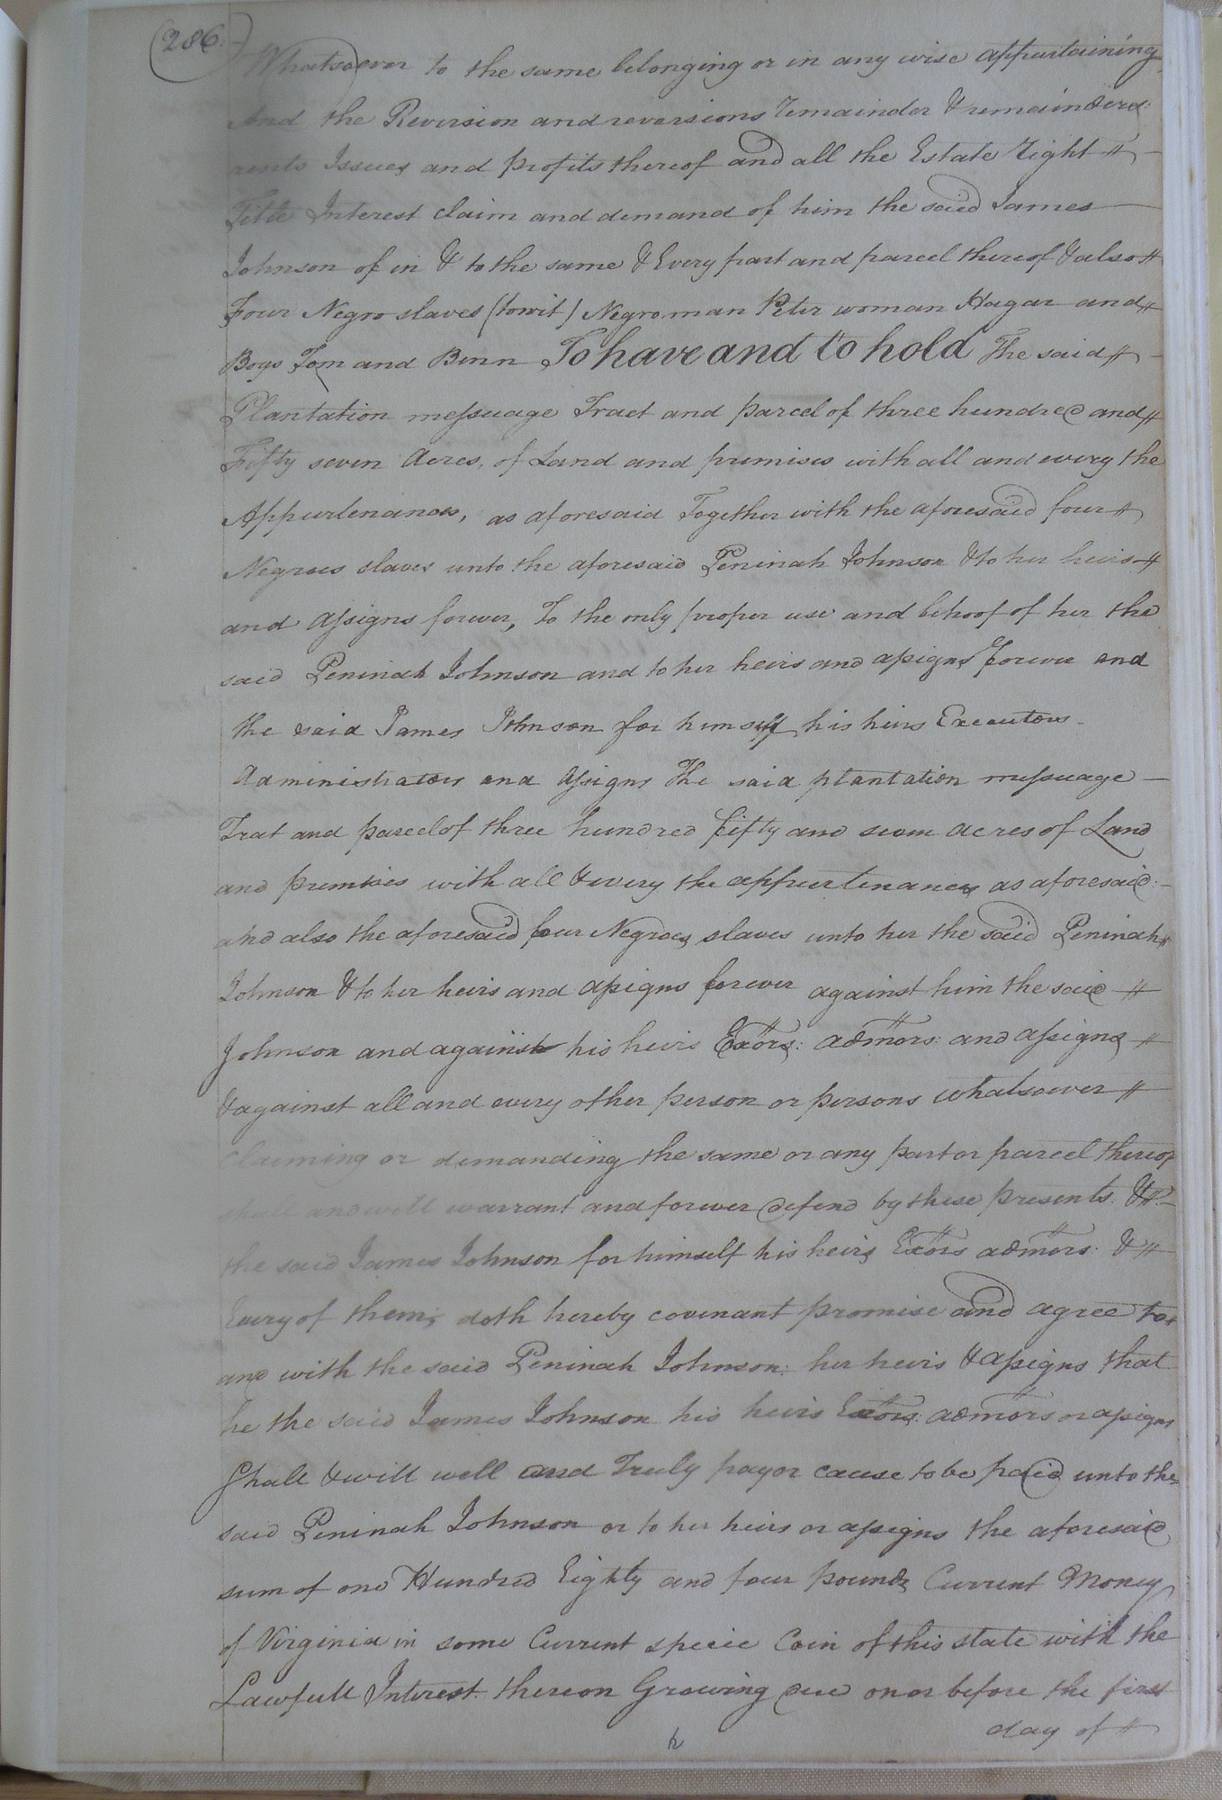 (286)
Whatsoever to the same belonging or in any wise appertaining
And the Reversion and reversions remainder & remainders
rents Issues and profits thereof and all the Estate right
Title Interest claim and demand of him the said James
Johnson of in & to the same & Every part and parcel thereof & also
Four Negro slaves (towit) Negro man Peter woman Hagar and
Boys Tom and Benn To have and to hold The said
Plantation messuage Tract and parcel of three hundred and
Fifty seven Acres, of Land and premises with all and every the
Appurtenances, as aforesaid Together with the aforesaid four
Negroes slaves unto the aforesaid Peninah Johnson & to her heirs
and assigns forever, To the only proper use and behoof of her the
said Peninah Johnson and to her heirs and assigns forever and
the said James Johnson for himself his heirs Executors
Administrators and Assigns The said plantation messuage
Trat and parcel of three hundred fifty and seven acres of Land
and premises with all & every the appurtenances as aforesaid:
and also the aforesaid four Negroes slaves unto her the said Peninah
Johnson & to her heirs and assigns forever against him the said
Johnson and against his heirs Exors: admors: and assigns
& against all and every other person or persons whatsoever
Claiming or demanding the same or any part or parcel thereof
shall and will warrant and forever defend by these presents. &
the said James Johnson for himself his heirs Exors admors: &
Every of them, doth hereby covenant promise and agree to
and with the said Peninah Johnson: her heirs & assigns that
he the said James Johnson his heirs Exors: admors or assigns
Shall & will well and Truly pay or cause to be paid unto the
said Peninah Johnson or to her heirs or assigns the aforesaid
sum of one Hundred Eighty and four pounds Current Money
of Virginia in some Current specie Coin of this state with the
Lawfull Interest thereon Growing due on or before the first
day of